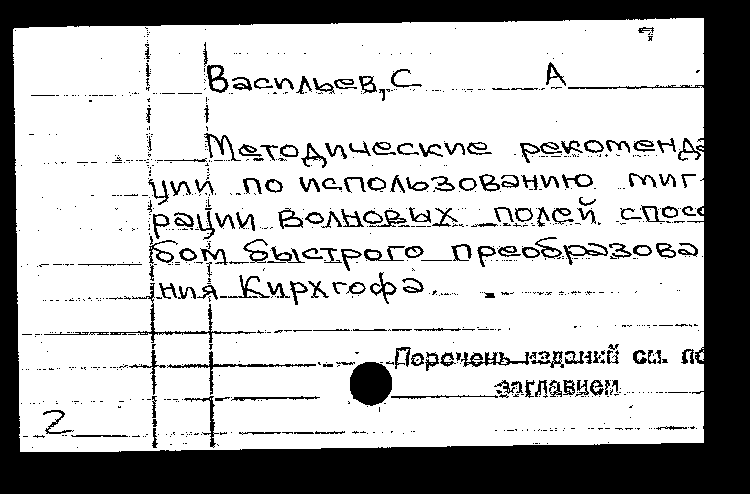 7
Васильев, С А
Методические рекоменда
ции по использованию миг-
рации волновых полей спосо
бом быстрого преобразова
ния Кирхгофа.
Перечень изданий см. по
заглавием
2